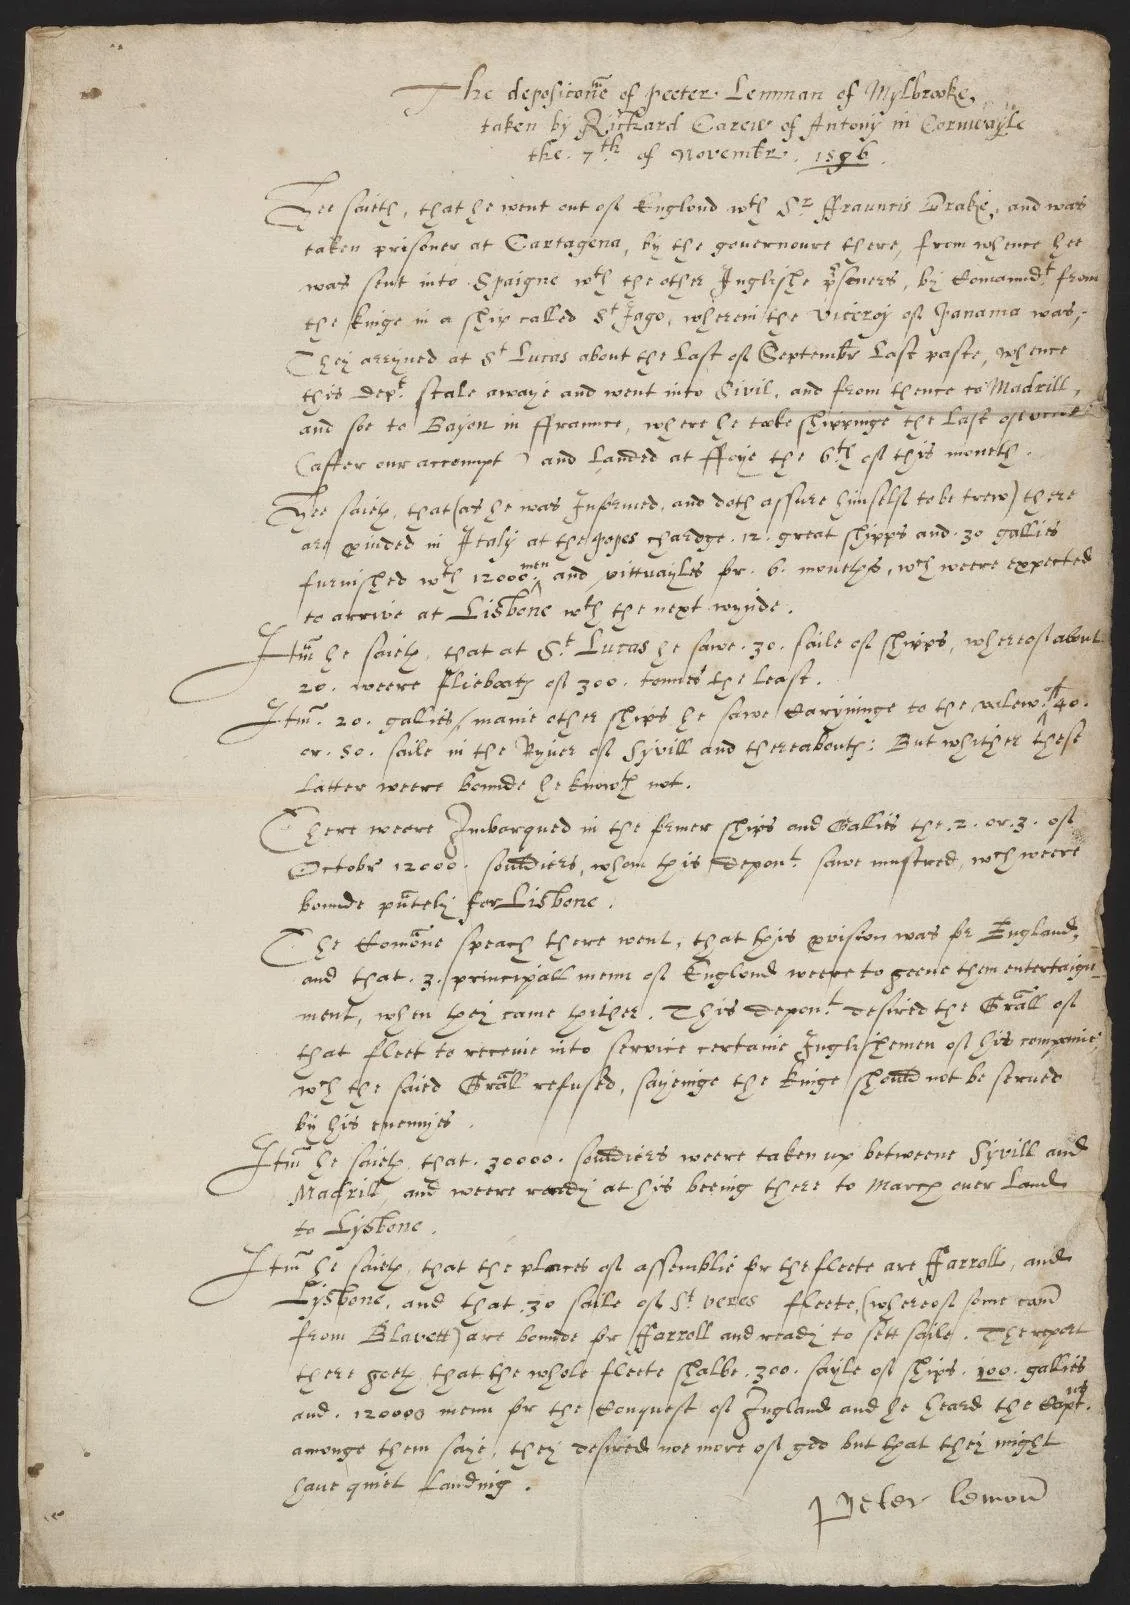 The deposicone of Peeter Lemman of Mylbrooke,
taken by Richard Carew of Antony in Cornwayle
the .7th of Novembr. 1596.
Hee saieth, that he went out of Englond wth Sr ffrauncis Drake, and was
taken prisoner at Cartagena, by the governoure there, from whence hee
was sent into Spaigne wth the other Inglishe prsoners, by Comaundt from
the kinge in a ship called St Jago, wherein the viceroy of Panama was,
They arryued at St Lucas about the last of Septembr last paste, whence
this dept stale awaye and went into Sivil, and from thence to Madrill,
and soe to Bayon in ffraunce, where he tooke shippinge the last of
(after our accompt) and landed at ffoye the 6th of this moneth.
Hee saieth, that (as he was Informed, and doth assure himself to be trew) there
are pvided in Italy at the popes chardge .12. great shipps and .30 gallies
furnished wth 12000. men and vittuayles for .6. moneths, wch weere expected
to arrive at Lisbone wth the next wynde.
Itm he saieth, that at St Lucas he sawe .30. saile of shipps, whereof about
20. weere flieboats of 300. tonnes the least.
Itm. 20. gallies / manie other ships he sawe Caryninge to the valew of 40.
or .50. saile in the Ryver of Syvill and thereabouts: But whither these
latter weere bounde he knowth not.
There weere Imbarqued in the former ships and Gallies the .2. or .3. of
Octobr 12000. souldiers, whom this depont. sawe mustred, wch weere
bounde pntely for Lisbone.
The Comone speach there went, that this pvision was for England,
and that .3. principall menn of Englond weere to geeue them entertaign-
ment, when they came hither. This depont. desired the Grall of
that fleet to receiue into service certaine Inglishemen of his companie,
wch the saied Grall refused, sayeinge the kinge should not be serued
by his enemyes.
Itm he saieth, that .30000. souldiers weere taken up betweene Syvill and
Madrill, and weere ready at his beeing there to march ouer land
to Lysbone.
Itm he saieth, that the places of assemblie for the fleete are ffarroll, and
Lysbone, and that .30 saile of St veres fleete, (whereof some cam
from Blavett) are bounde for ffarroll and ready to sett saile. The report
there goeth, that the whole fleete shalbe .300. sayle of ships .100. gallies
and .120000 menn for the Conquest of Ingland and he heard the Capt.
amonge them saye, they desired noe more of god but that they might
haue quiet landing.
Peter lemon